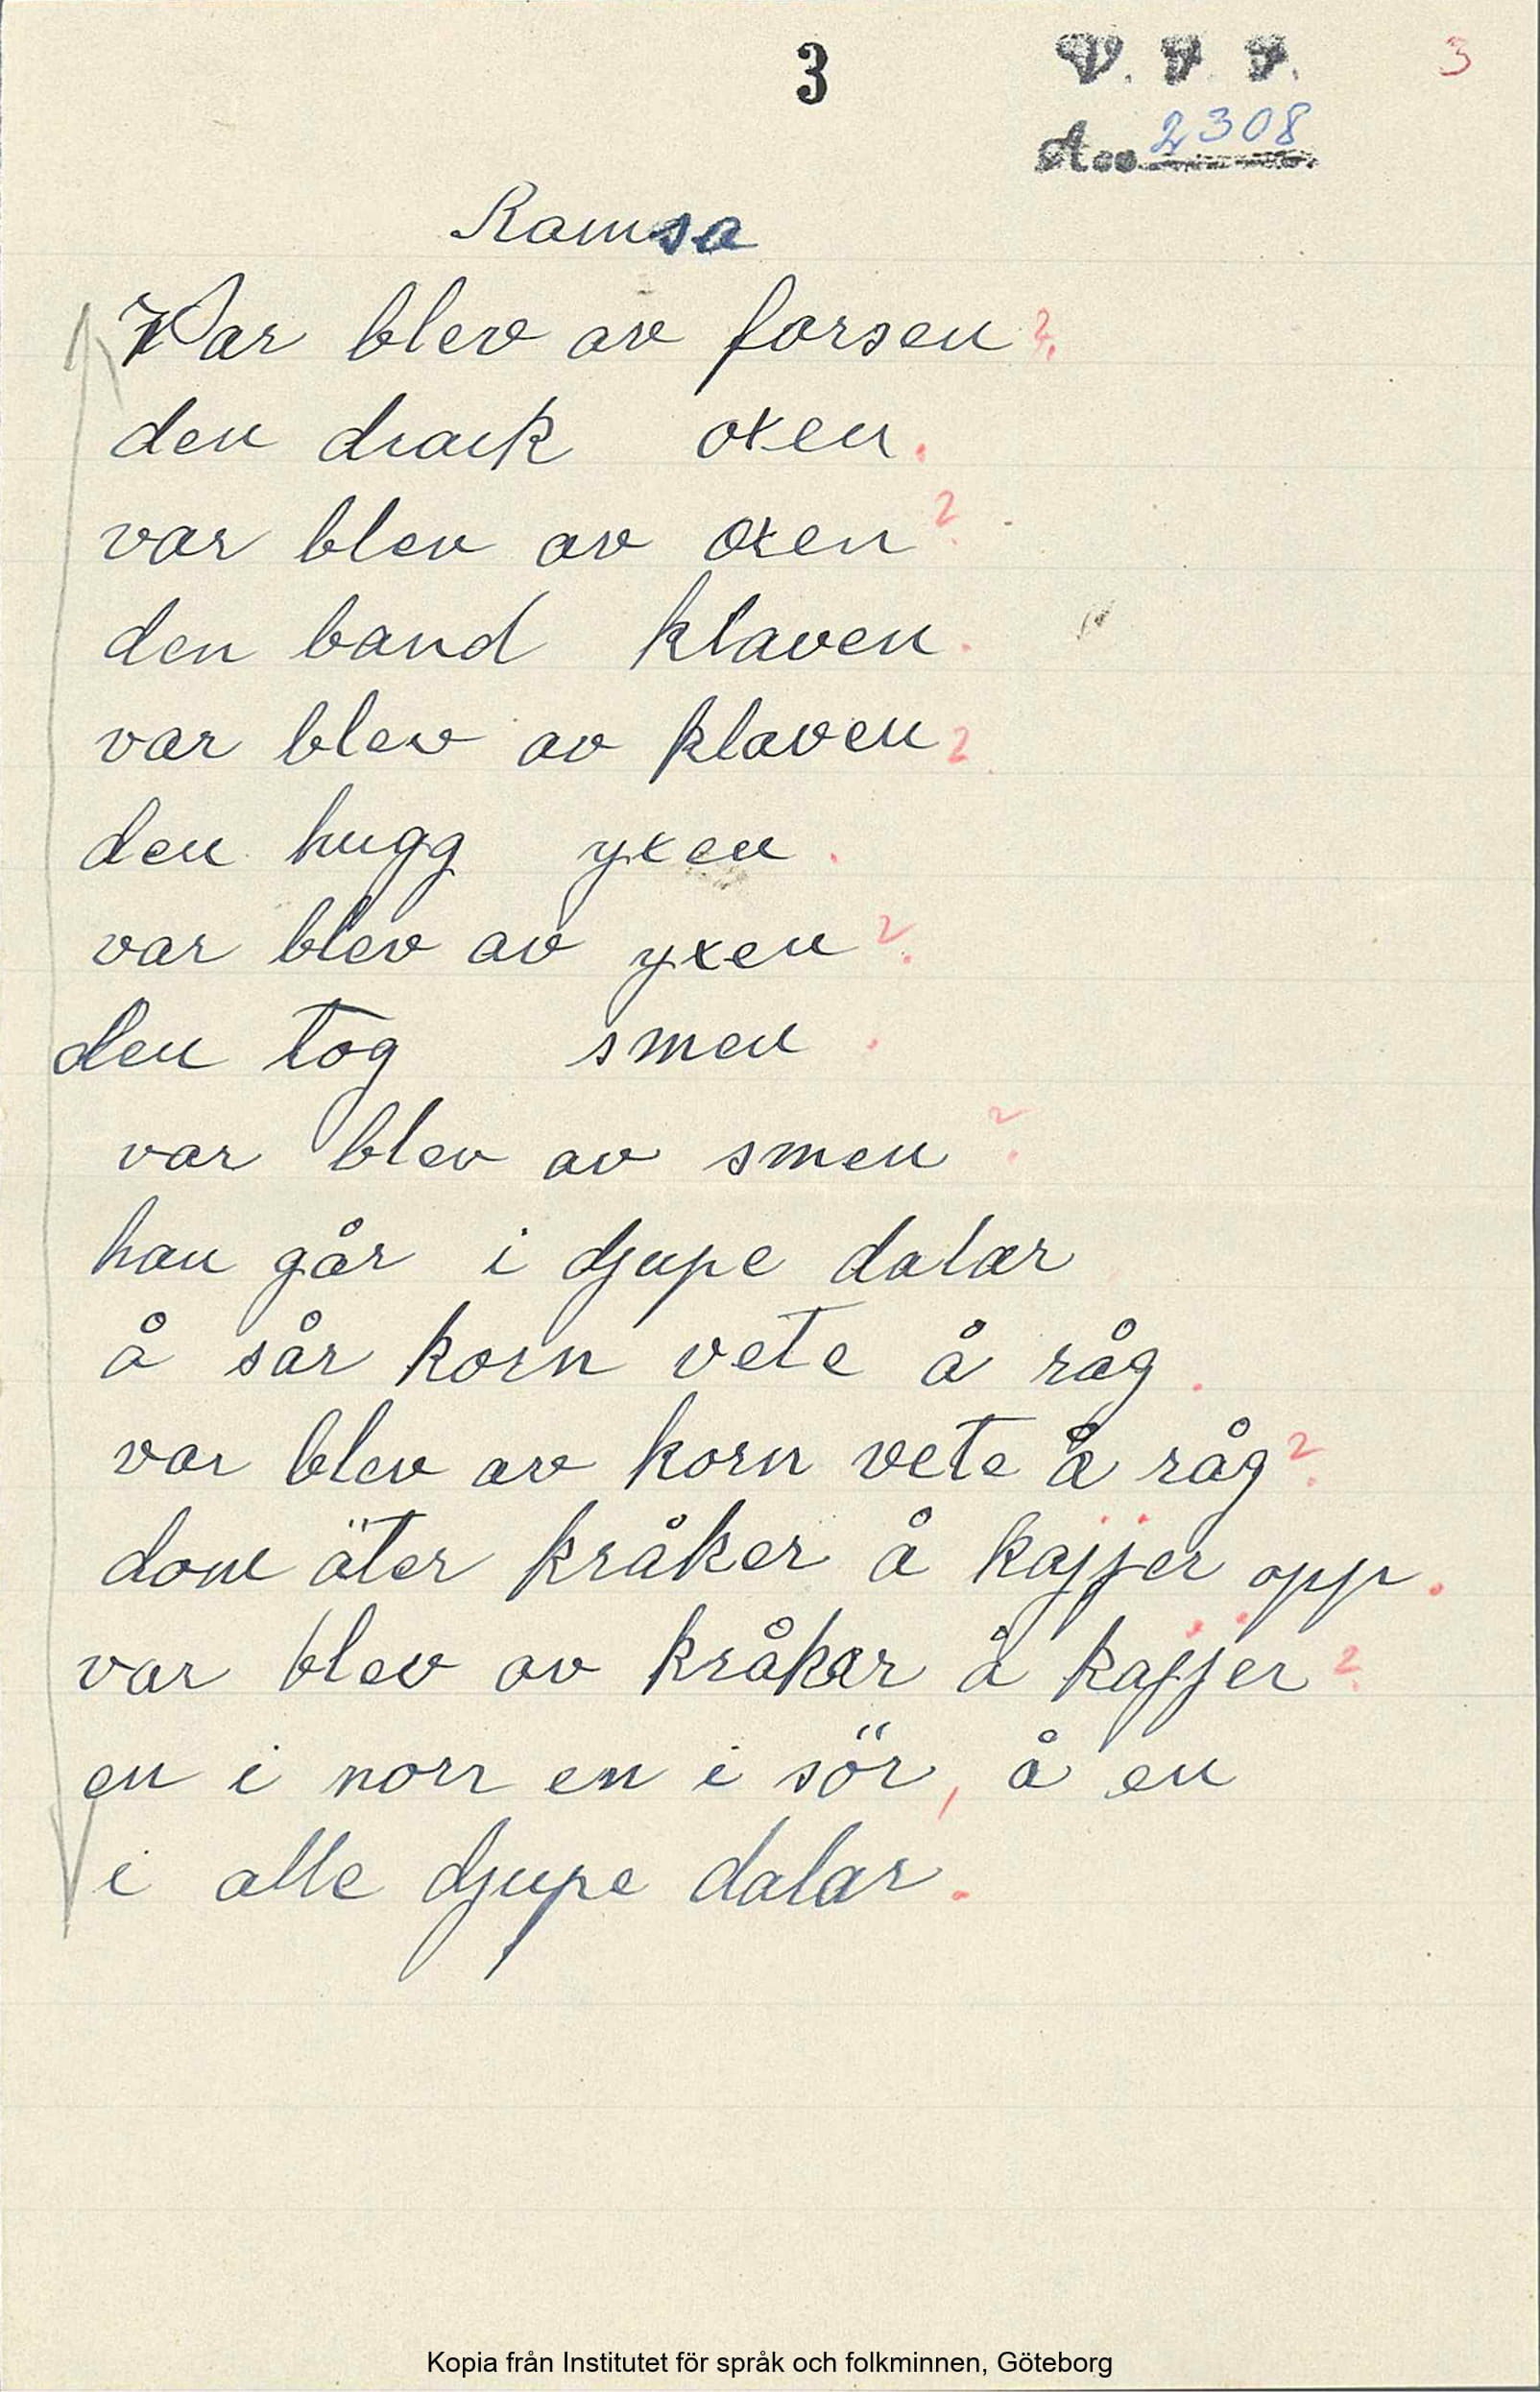 3
V. F. F.
3
Acc. 2308
Ramsa
Var blev av forsen?
den drack oxen.
var blev av oxen?
den band klaven.
var blev av klaven?
den hugg yxen.
var blev av yxen?
den tog smen.
var blev av smen?
han går i djupe dalar
å sår korn vete å råg.
var blev av korn vete å råg?
dom äter kråker å kajjer opp.
var blev av kråker å kajjer?
en i norr en i sör, å en
i alle djupe dalar.
Kopia från Institutet för språk och folkminnen, Göteborg